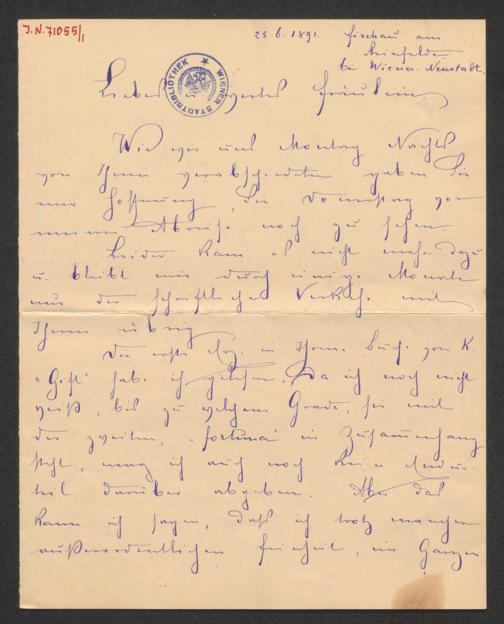 J.N. 71055/1
25.6.1891. Fischau am
bei Wiener-Neustadt.
WIENER STADTBIBLIOTHEK
Liebes u. wertes Fräulein.
Wie wir uns Montag Nachts
von Ihnen verabschiedeten gaben Sie
mir Hoffnung, Sie Donnerstag vor
meiner Abreise noch zu sehen.
Leider kam es nicht mehr dazu
u. bleibt mir durch einige Monate
nur der schriftliche Verkehr mit
Ihnen übrig.
Die erste in Ihrem Buche von K.
"Gift" habe ich gelesen. Da ich noch nicht
weiß, bis zu welchem Grade, sie mit
der zweiten, "Fortuna" in Zusammenhang
steht, mag ich auch noch kein
teil darüber abgeben. Aber das
kann ich sagen, daß ich trotz mancher
außerordentlichen Feinheit, im Ganzen